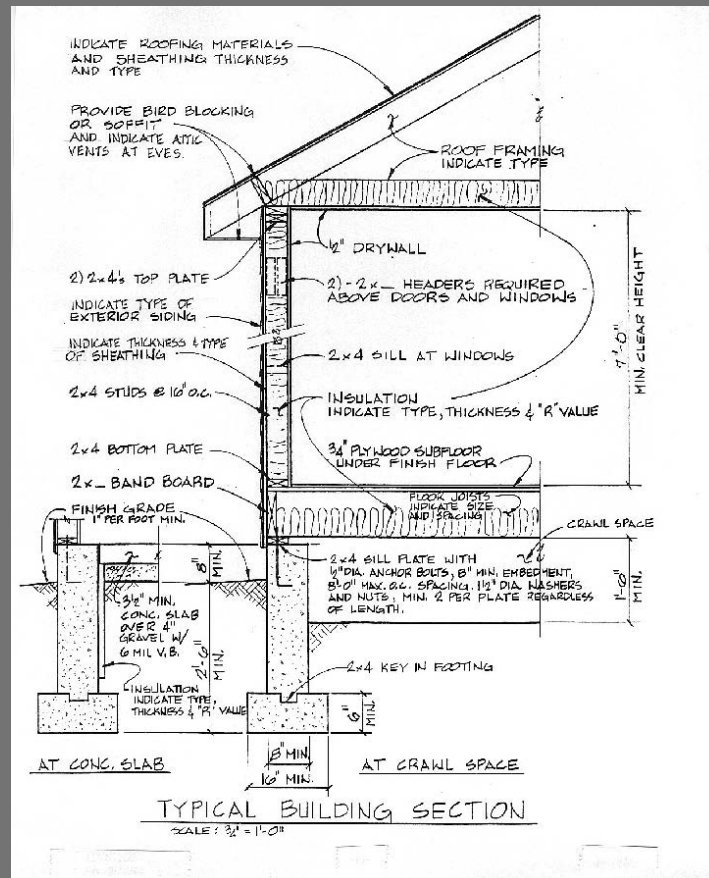 INDICATE ROOFING MATERIALS
AND SHEATHING THICKNESS
AND TYPE
PROVIDE BIRD BLOCKING
OR SOFFIT
AND INDICATE ATTIC
VENTS AT EVES.
ROOF FRAMING
INDICATE TYPE
1/2" DRYWALL
2) 2x4's TOP PLATE
2) - 2x_ HEADERS REQUIRED
ABOVE DOORS AND WINDOWS
INDICATE TYPE OF
EXTERIOR SIDING
INDICATE THICKNESS & TYPE
OF SHEATHING
2x4 SILL AT WINDOWS
7'-0"
MIN. CLEAR HEIGHT
2x4 STUDS @ 16" O.C.
INSULATION
INDICATE TYPE, THICKNESS & "R" VALUE
2x4 BOTTOM PLATE
3/4" PLYWOOD SUBFLOOR
UNDER FINISH FLOOR
2x_ BAND BOARD
FLOOR JOISTS
INDICATE SIZE
AND SPACING
FINISH GRADE
1" PER FOOT MIN.
CRAWL SPACE
8"
MIN.
2x4 SILL PLATE WITH
1/2" DIA. ANCHOR BOLTS, 8" MIN. EMBEDMENT,
8'-0" MAX. O.C. SPACING. 1 1/2" DIA. WASHERS
AND NUTS, MIN. 2 PER PLATE REGARDLESS
OF LENGTH.
1'-6"
MIN.
3 1/2" MIN.
CONC. SLAB
OVER 4"
GRAVEL W/
6 MIL V.B.
2'-6"
MIN.
INSULATION
INDICATE TYPE,
THICKNESS & "R" VALUE
2x4 KEY IN FOOTING
6"
MIN.
8" MIN.
16" MIN.
AT CONC. SLAB
AT CRAWL SPACE
TYPICAL BUILDING SECTION
SCALE: 3/4" = 1'-0"